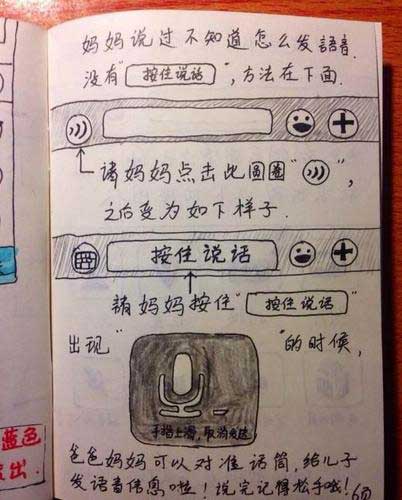 妈妈说过不知道怎么发語音.
没有"按住说话",方法在下面.
请妈妈点击此圆圈"",
之后变为如下样子.
按住说话
請妈妈按住"按住说话"
出现""的时候,
手指上滑,取消发送
爸爸妈妈可以对准话筒,给儿子
发语音信息啦!说完记得松手哦!
蓝色
出.